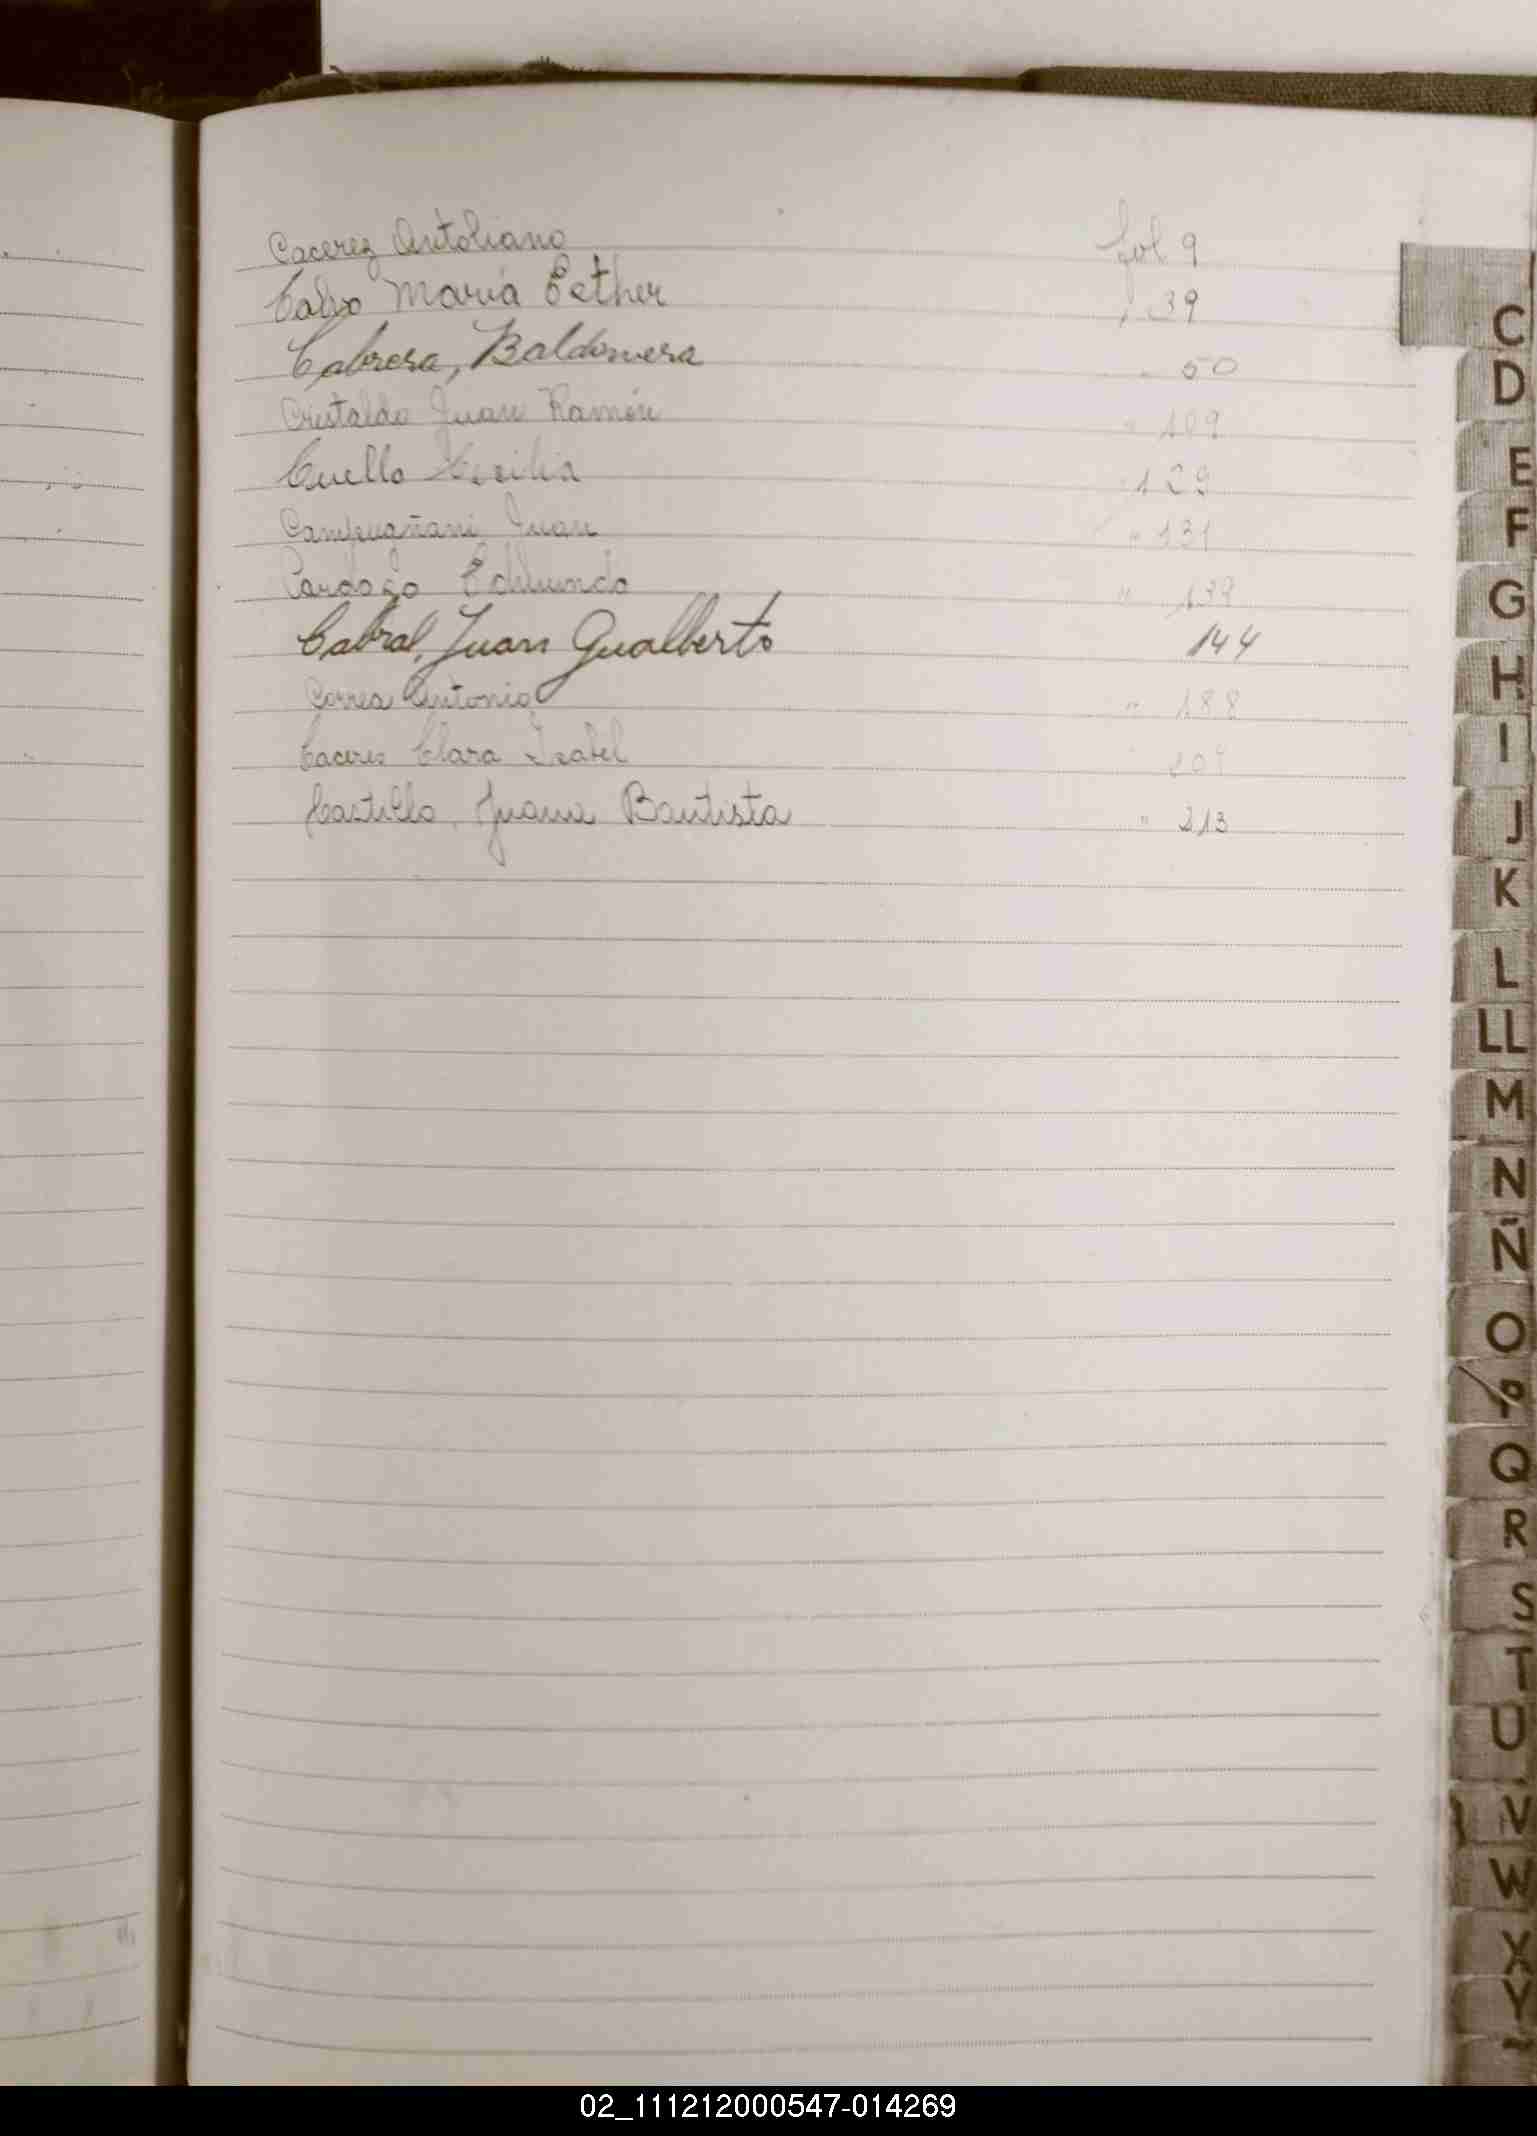 Cacerez Antoliano fol 9
Calvo María Esther " 39
Cabrera, Baldomera " 50
Cristaldo Juan Ramón " 109
Cuello Cecilia " 129
Campuañani Juan " 131
Cardozo Edmundo " 139
Cabral, Juan Gualberto 144
Correa Antonio " 188
Caceres Clara Isabel "
Castillo, Juana Bautista " 213
C
D
E
F
G
H
I
J
K
L
LL
M
N
Ñ
O
P
Q
R
S
T
U
V
W
X
Y
02_111212000547-014269